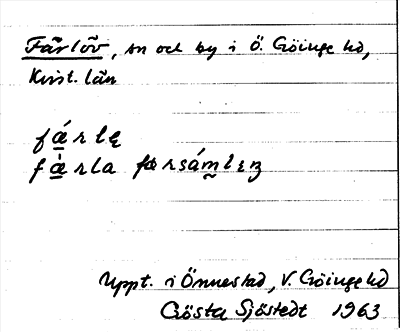 Färlöv, sn och by i Ö. Göinge hd,
Krist. län
fǽrlę
fǽrla færsámlıŋ
Uppt. i Önnestad, V. Göinge hd
Gösta Sjöstedt 1963